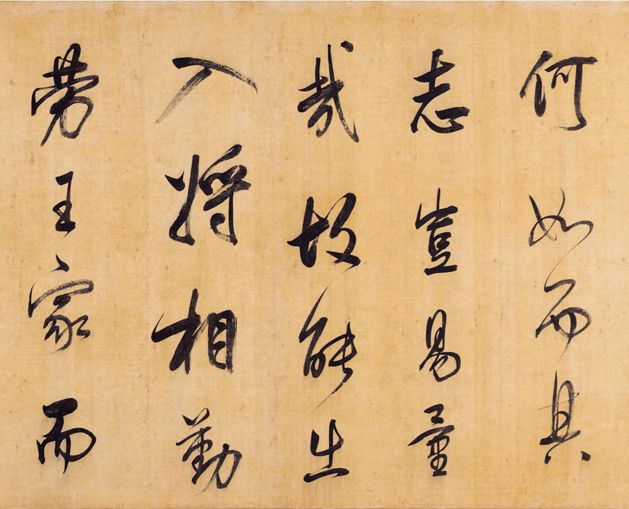 何如而其
志豈易量
哉故能出
入將相勤
劳王家而